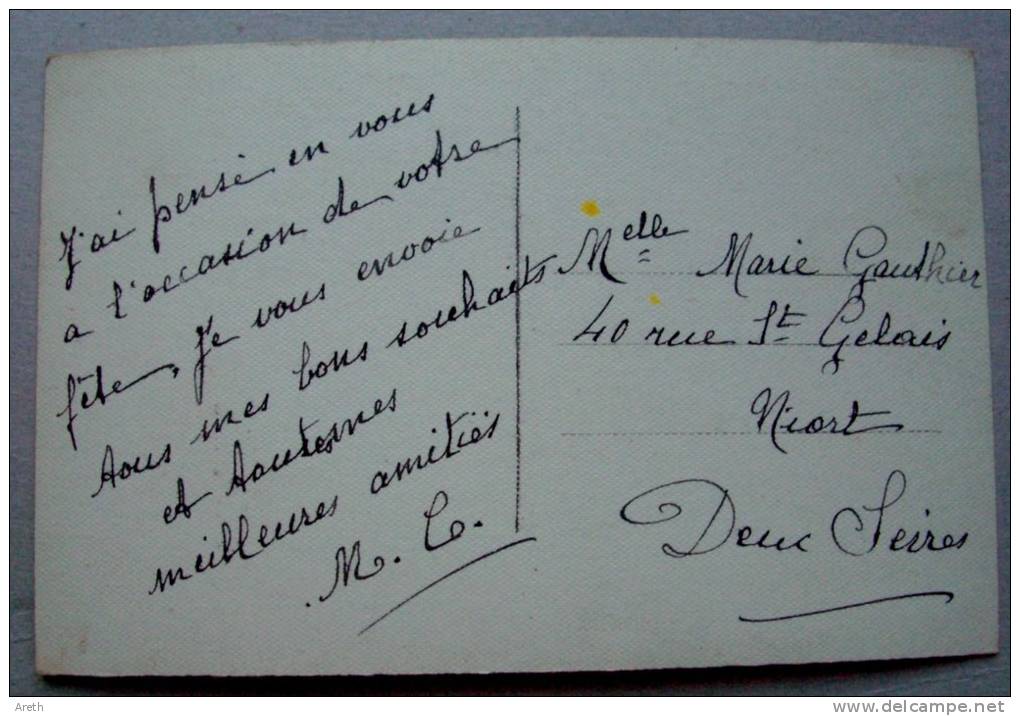 J'ai pensé en vous
a l'occasion de votre
fête, Je vous envoie
tous mes bons souhaits
et toutes mes
meilleures amitiés
M. C.
Melle Marie Gauthier
40 rue St Gelais
Niort
Deux Sèvres
Areth
www.delcampe.net